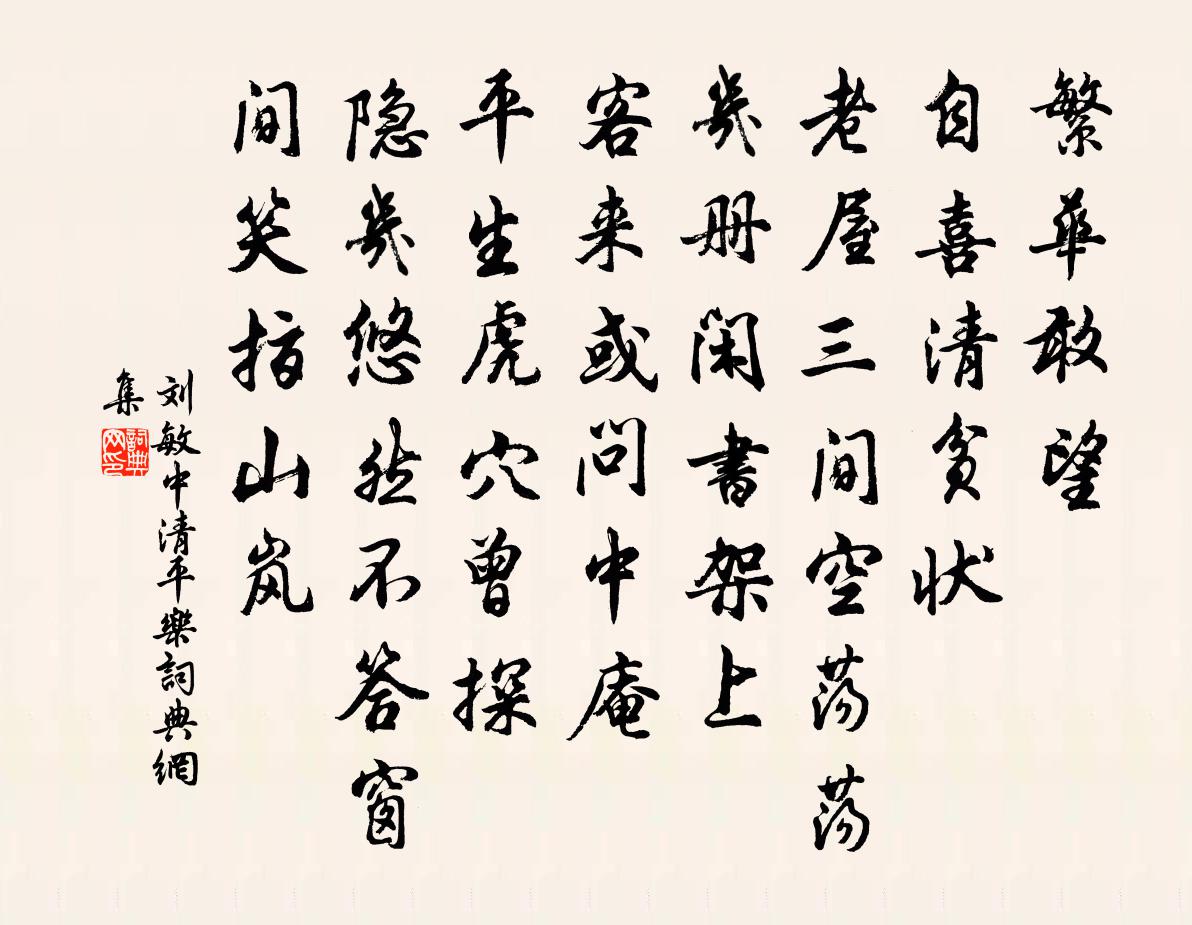 繁華敢望
自喜清貧状
老屋三间空荡荡
幾册闲書架上
客来或问中庵
平生虎穴曾探
隐幾悠然不答窗
间笑指山岚
刘敏中清平樂詞典網
集
詞典
网印